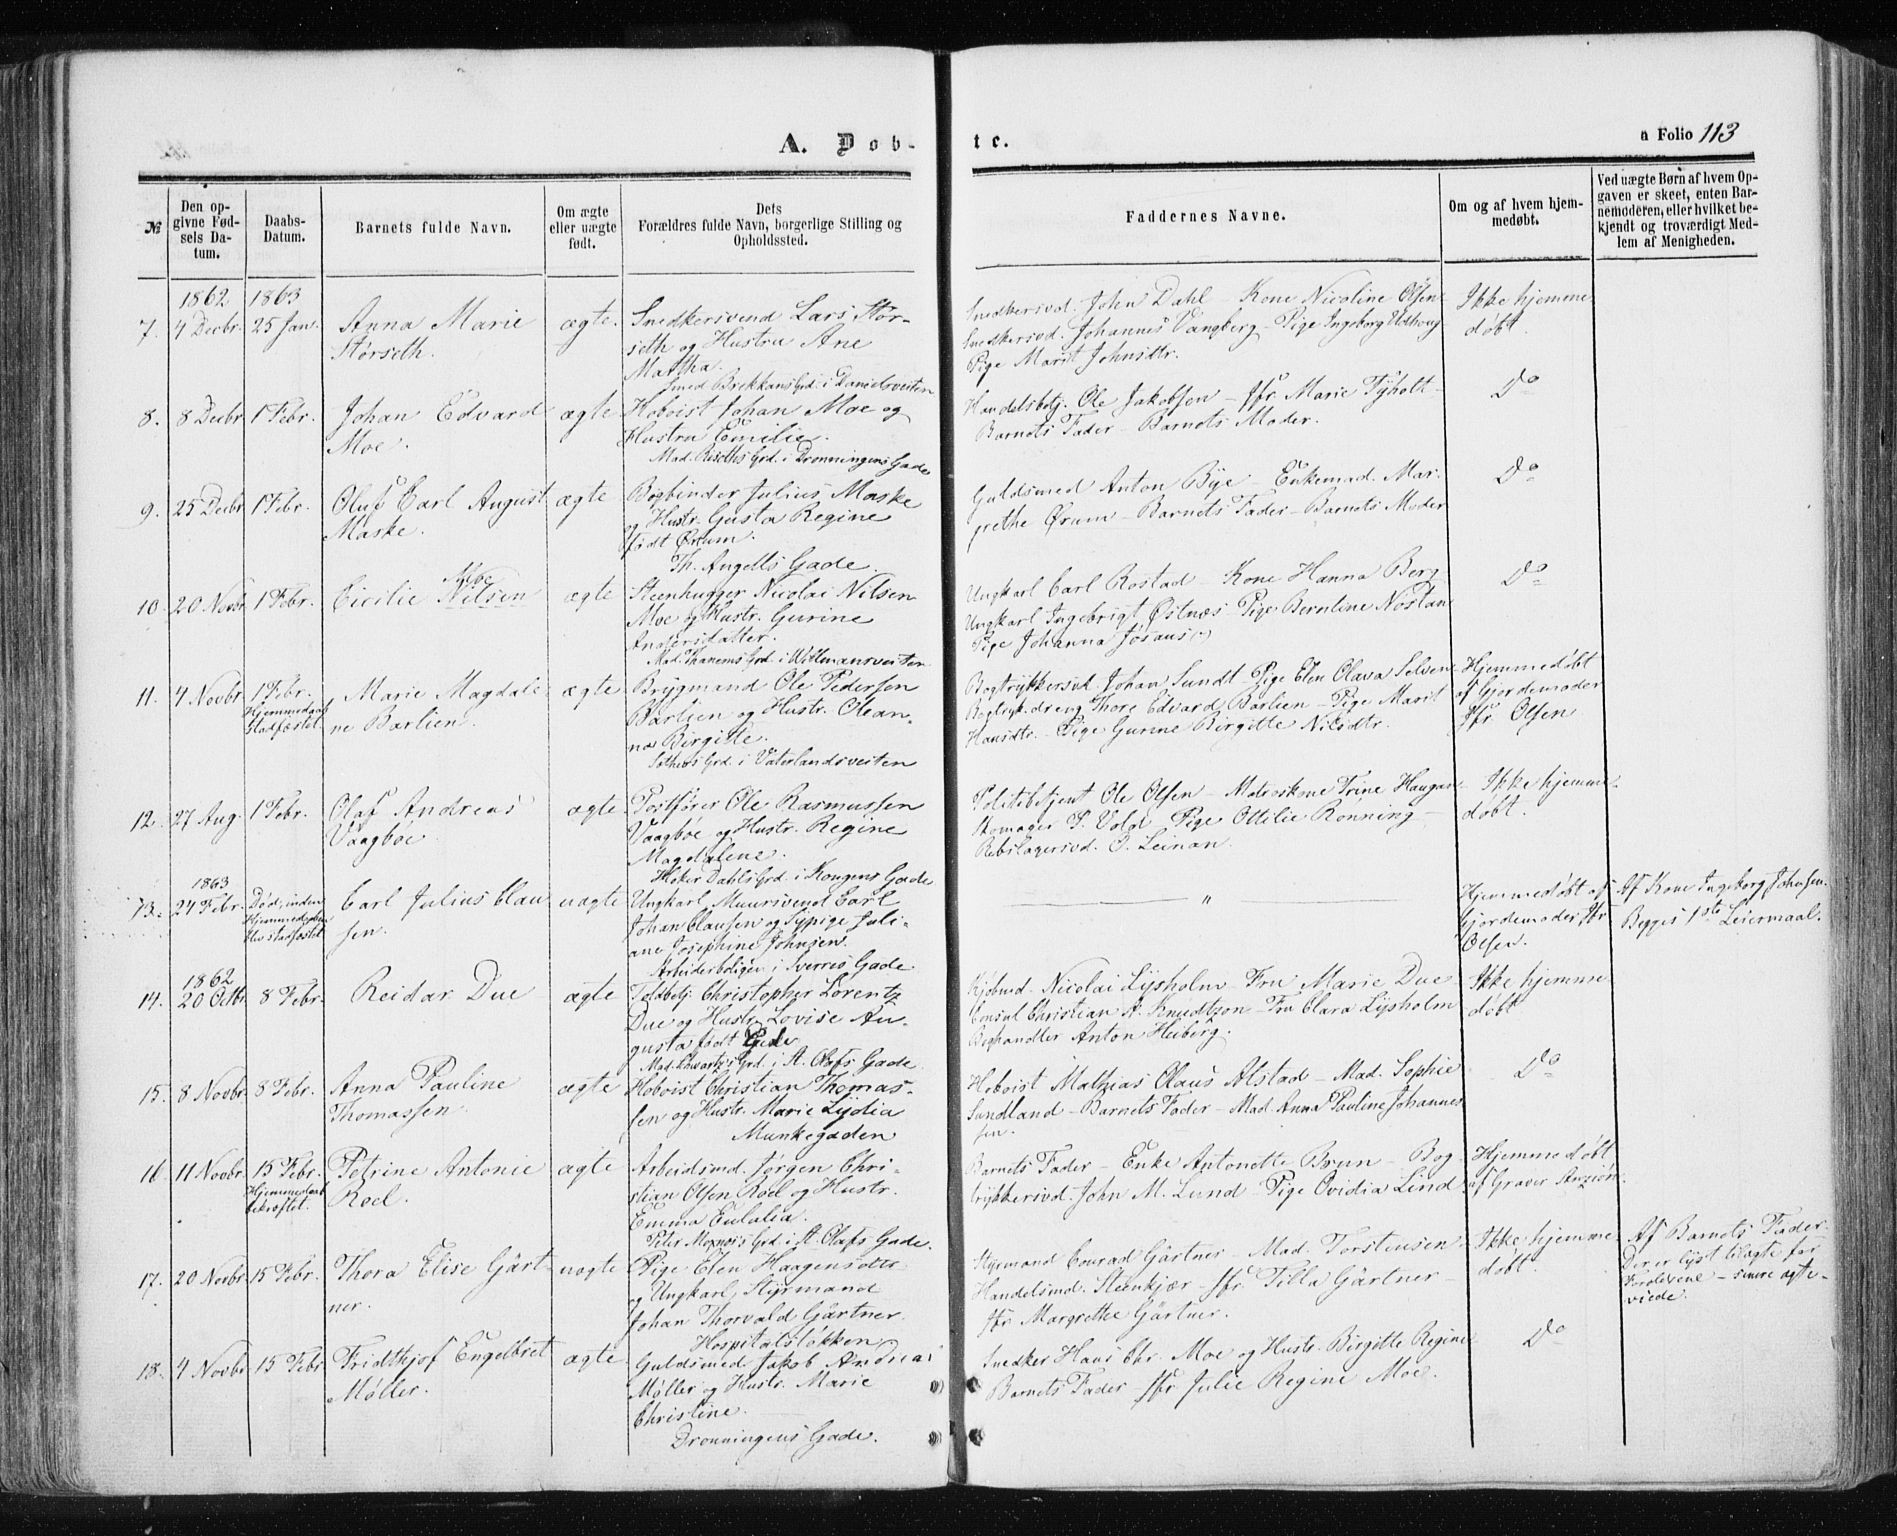 A. Dob-
te.
a Folio 113
№
Den op-
givne Fød-
sels Da-
tum.
Daabs-
Datum.
Barnets fulde Navn.
Om ægte
eller uægte
født.
Dets
Forældres fulde Navn, borgerlige Stilling og
Opholdssted.
Faddernes Navne.
Om og af hvem hjem-
medøbt.
Ved uægte Børn af hvem Op-
gaven er skeet, enten Bar-
nemoderen, eller hvilket be-
kjendt og troværdigt Med-
lem af Menigheden.
1862 1863
7. 4 Decbr. 25 Jan. Anna Marie
Størseth.
ægte.
Snedkersvend Lars Stør-
seth og Hustru Ane
Martha.
Smed Brekkans Grd. i Danielsveiten
Snedkersvd. John Dahl - Kone Nicoline Olsen
Snedkersvd. Johannes Vangberg - Pige Ingeborg Udhoug
Pige Marit Johnsdtr.
Ikke hjemme
døbt.
8. 8 Decbr 1 Febr. Johan Edvard
Moe.
ægte
Hoboist Johan Moe og
Hustru Emilie.
Mad. Riseths Grd. i Dronningens Gade
Handelsbetj. Ole Jakobsen - Jfr. Marie Tyholt -
Barnets Fader - Barnets Moder.
Do
9. 25 Decbr 1 Febr. Oluf Carl August
Maske.
ægte
Bogbinder Julius Maske
og Hustr. Gusta Regine
født Ørum.
Th. Angells Gade.
Guldsmed Anton Bye - Enkemad. Mar-
grethe Ørum - Barnets Fader - Barnets Moder
Do
10. 20 Novbr 1 Febr. Cicilie Nilsen
Moe
ægte
Steenhugger Nicolai Nilsen
Moe og Hustr. Gurine
Andersdatter.
Mad. Thanems Grd. i Wittmansveiten
Ungkarl Carl Rostad - Kone Hanna Berg
Ungkarl Ingebrigt Østnæs - Pige Berntine Nostan
Pige Johanna Josaus(?)
Do
11. 4 Novbr 1 Febr.
Hjemmedaab
stadfæstet
Marie Magdale-
ne Barlien.
ægte
Brygmand Ole Pedersen
Barlien og Hustr. Olean-
na Birgitte.
Grd. i Vaterlandsveiten
Bogtrykkersvd Johan Sundt - Pige Elen Olava Selven
Bogtryk.dreng Thore Edvard Barlien - Pige Marit
Hansdtr. - Pige Gurine Birgitte Nilsdtr.
Hjemmedøbt
af Gjordemoder
Jfr. Olsen
12. 27 Aug. 1 Febr. Olaf Andreas
Vaagbøe.
ægte.
Postfører Ole Rasmussen
Vaagbøe og Hustr. Regine
Magdalene.
Høker Dahls Grd. i Kongens Gade
Politibetjent Ole Olsen - Matroskone Trine Haugan
Skomager P. Vold - Pige Ottilie Rønning -
Rebslagersvd. O. Leinan.
Ikke hjemme-
døbt.
1863
13. 24 Febr. Død, inden
Hjemmedaaben
blev stadfæstet
Carl Julius Clau
sen.
uægte
Ungkarl Muursvend Carl
Johan Clausen og Sypige Juli-
ane Josephine Johnsen.
Arbeiderboligen i Sverres Gade
"
Hjemmedøbt af
Gjordemoder Jfr
Olsen.
Af Kone Ingeborg Johnsen.
Begges 1ste Leiermaal.
1862
14. 20 Octbr. 8 Febr. Reidar Due
ægte
Toldbetj. Christopher Lorentz
Due og Hustr. Lovise Au-
gusta født Gede
Mad. Schwartz's Grd. i St. Olafs Gade
Kjøbmd. Nicolai Lysholm - Fru Marie Due
Consul Christian A. Knudtzon - Fru Clara Lysholm
Boghandler Anton Heiberg.
Ikke hjemme
døbt
15. 8 Novbr. 8 Febr. Anna Pauline
Thomassen.
ægte
Hoboist Christian Thomas-
sen og Hustr. Marie Lydia
Munkegaden
Hoboist Mathias Olaus Alstad - Mad. Sophie
Sundland - Barnets Fader - Mad. Anna Pauline Johannes
sen.
Do
16. 11 Novbr. 15 Febr.
Hjemmedaab
bekræftet.
Petrine Antonie
Roel.
ægte
Arbeidsmd. Jørgen Chri-
stian Olsen Roel og Hustr.
Emma Eulalia.
Peter Moxnæs Grd. i St. Olafs Gade.
Barnets Fader - Enke Antonette Brun - Bog
trykkersvd. John M. Lund - Pige Ovidia Lind
Hjemmedøbt
af Graver
17. 20 Novbr 15 Febr. Thora Elise Gärt-
ner.
uægte
Pige Elen Haagensdtr.
og Ungkarl, Styrmand
Johan Thorvald Gärtner.
Hospitalsløkken
Styrmand Conrad Gärtner - Mad. Torstensen
Handelsmd. Steenkjær - Jfr. Tilla Gärtner -
Jfr. Margrethe Gärtner.
Ikke hjemme
døbt.
Af Barnets Fader.
Der er lyst tilægte for
Forældrene - senere ægte-
viede.
18. 4 Novbr 15 Febr Fridthjof Engelbret
Møller.
ægte
Guldsmed Jakob Andreas
Møller og Hustr. Marie
Christine.
Dronningens Gade.
Snedker Hans Chr. Moe og Hustr. Birgitte Regine
Barnets Fader - Jfr Julie Regine Moe.
Do